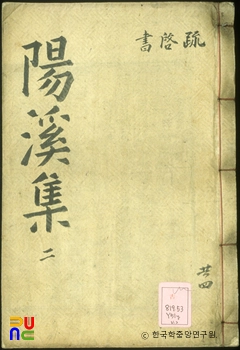 疏
啓
書
陽溪集
二
共四
PUNC
ⓒ 한국학중앙연구원